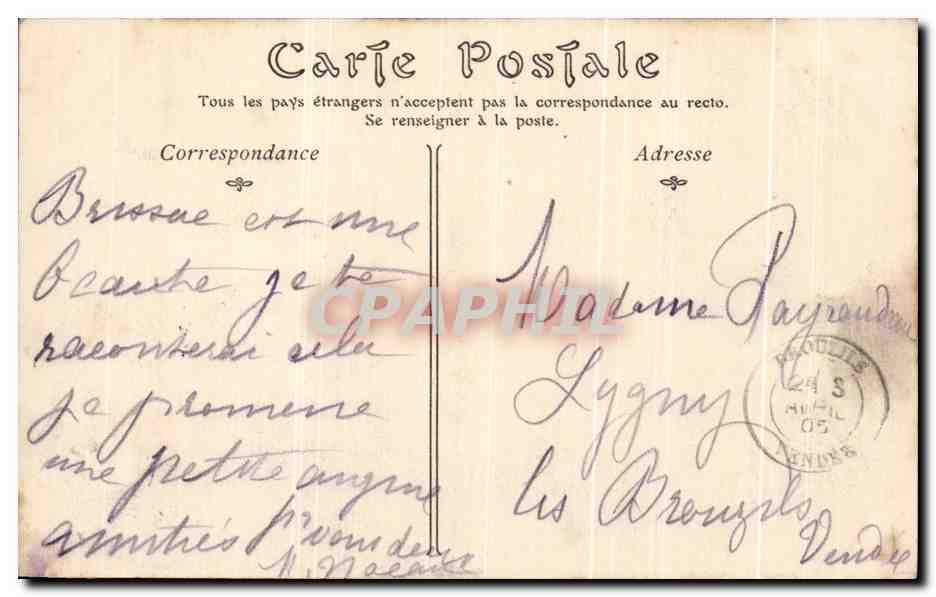 Carte Postale
Tous les pays étrangers n'acceptent pas la correspondance au recto.
Se renseigner à la poste.
Correspondance
Brissac est une
beauté je te
raconterai cela
je promene
une petite
amitiés pr vous deux
Adresse
Madame Payraudeau
Lygny
les Brouzils
Vendée
BROUZILS
24
AVRIL
05
VENDÉE
CPAPHIL